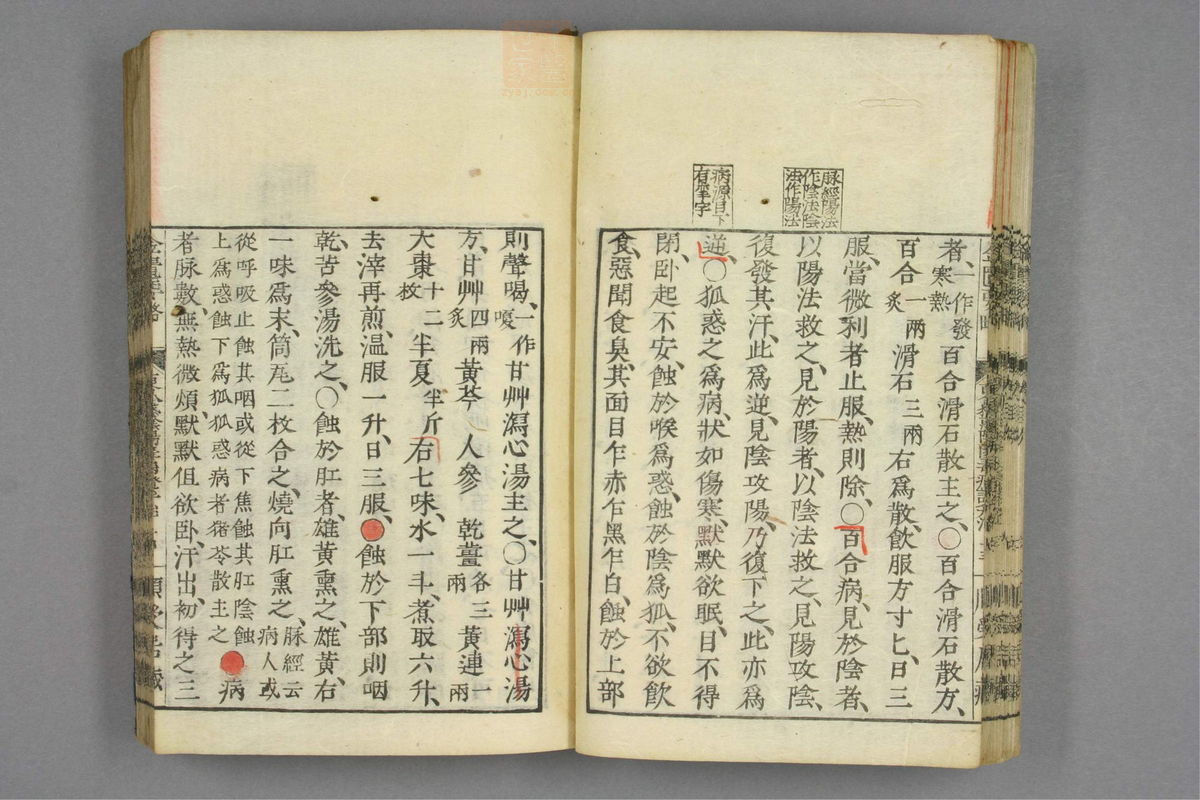 脉經陽法
作陰法陰
法作陽法
病源目下
有牽字
者、一作發寒熱百合滑石散主之、〇百合滑石散方、
百合一兩炙滑石三兩右爲散、飲服方寸匕、日三
服、當微利者止服、熱則除、〇百合病、見於陰者、
以陽法救之、見於陽者、以陰法救之、見陽攻陰、
復發其汗、此爲逆、見陰攻陽、乃復下之、此亦爲
逆、〇狐惑之爲病、狀如傷寒、默默欲眠、目不得
閉、卧起不安、蝕於喉爲惑、蝕於陰爲狐、不欲飲
食、惡聞食臭、其面目乍赤乍黑乍白、蝕於上部
則聲喝、一作嗄甘艸瀉心湯主之、〇甘艸瀉心湯
方、甘艸四兩炙黃芩人參乾薑各三兩黃連一兩
大棗十二枚半夏半斤右七味、水一斗、煮取六升、
去滓再煎、温服一升、日三服、蝕於下部則咽
乾、苦參湯洗之、〇蝕於肛者、雄黃熏之、雄黃、右
一味爲末、筒瓦二枚合之、燒向肛熏之、脉經云病人或
從呼吸上蝕其咽或從下焦蝕其肛陰蝕
上爲惑蝕下爲狐狐惑病者猪苓散主之病
者脉數、無熱微煩、默默但欲卧、汗出、初得之三